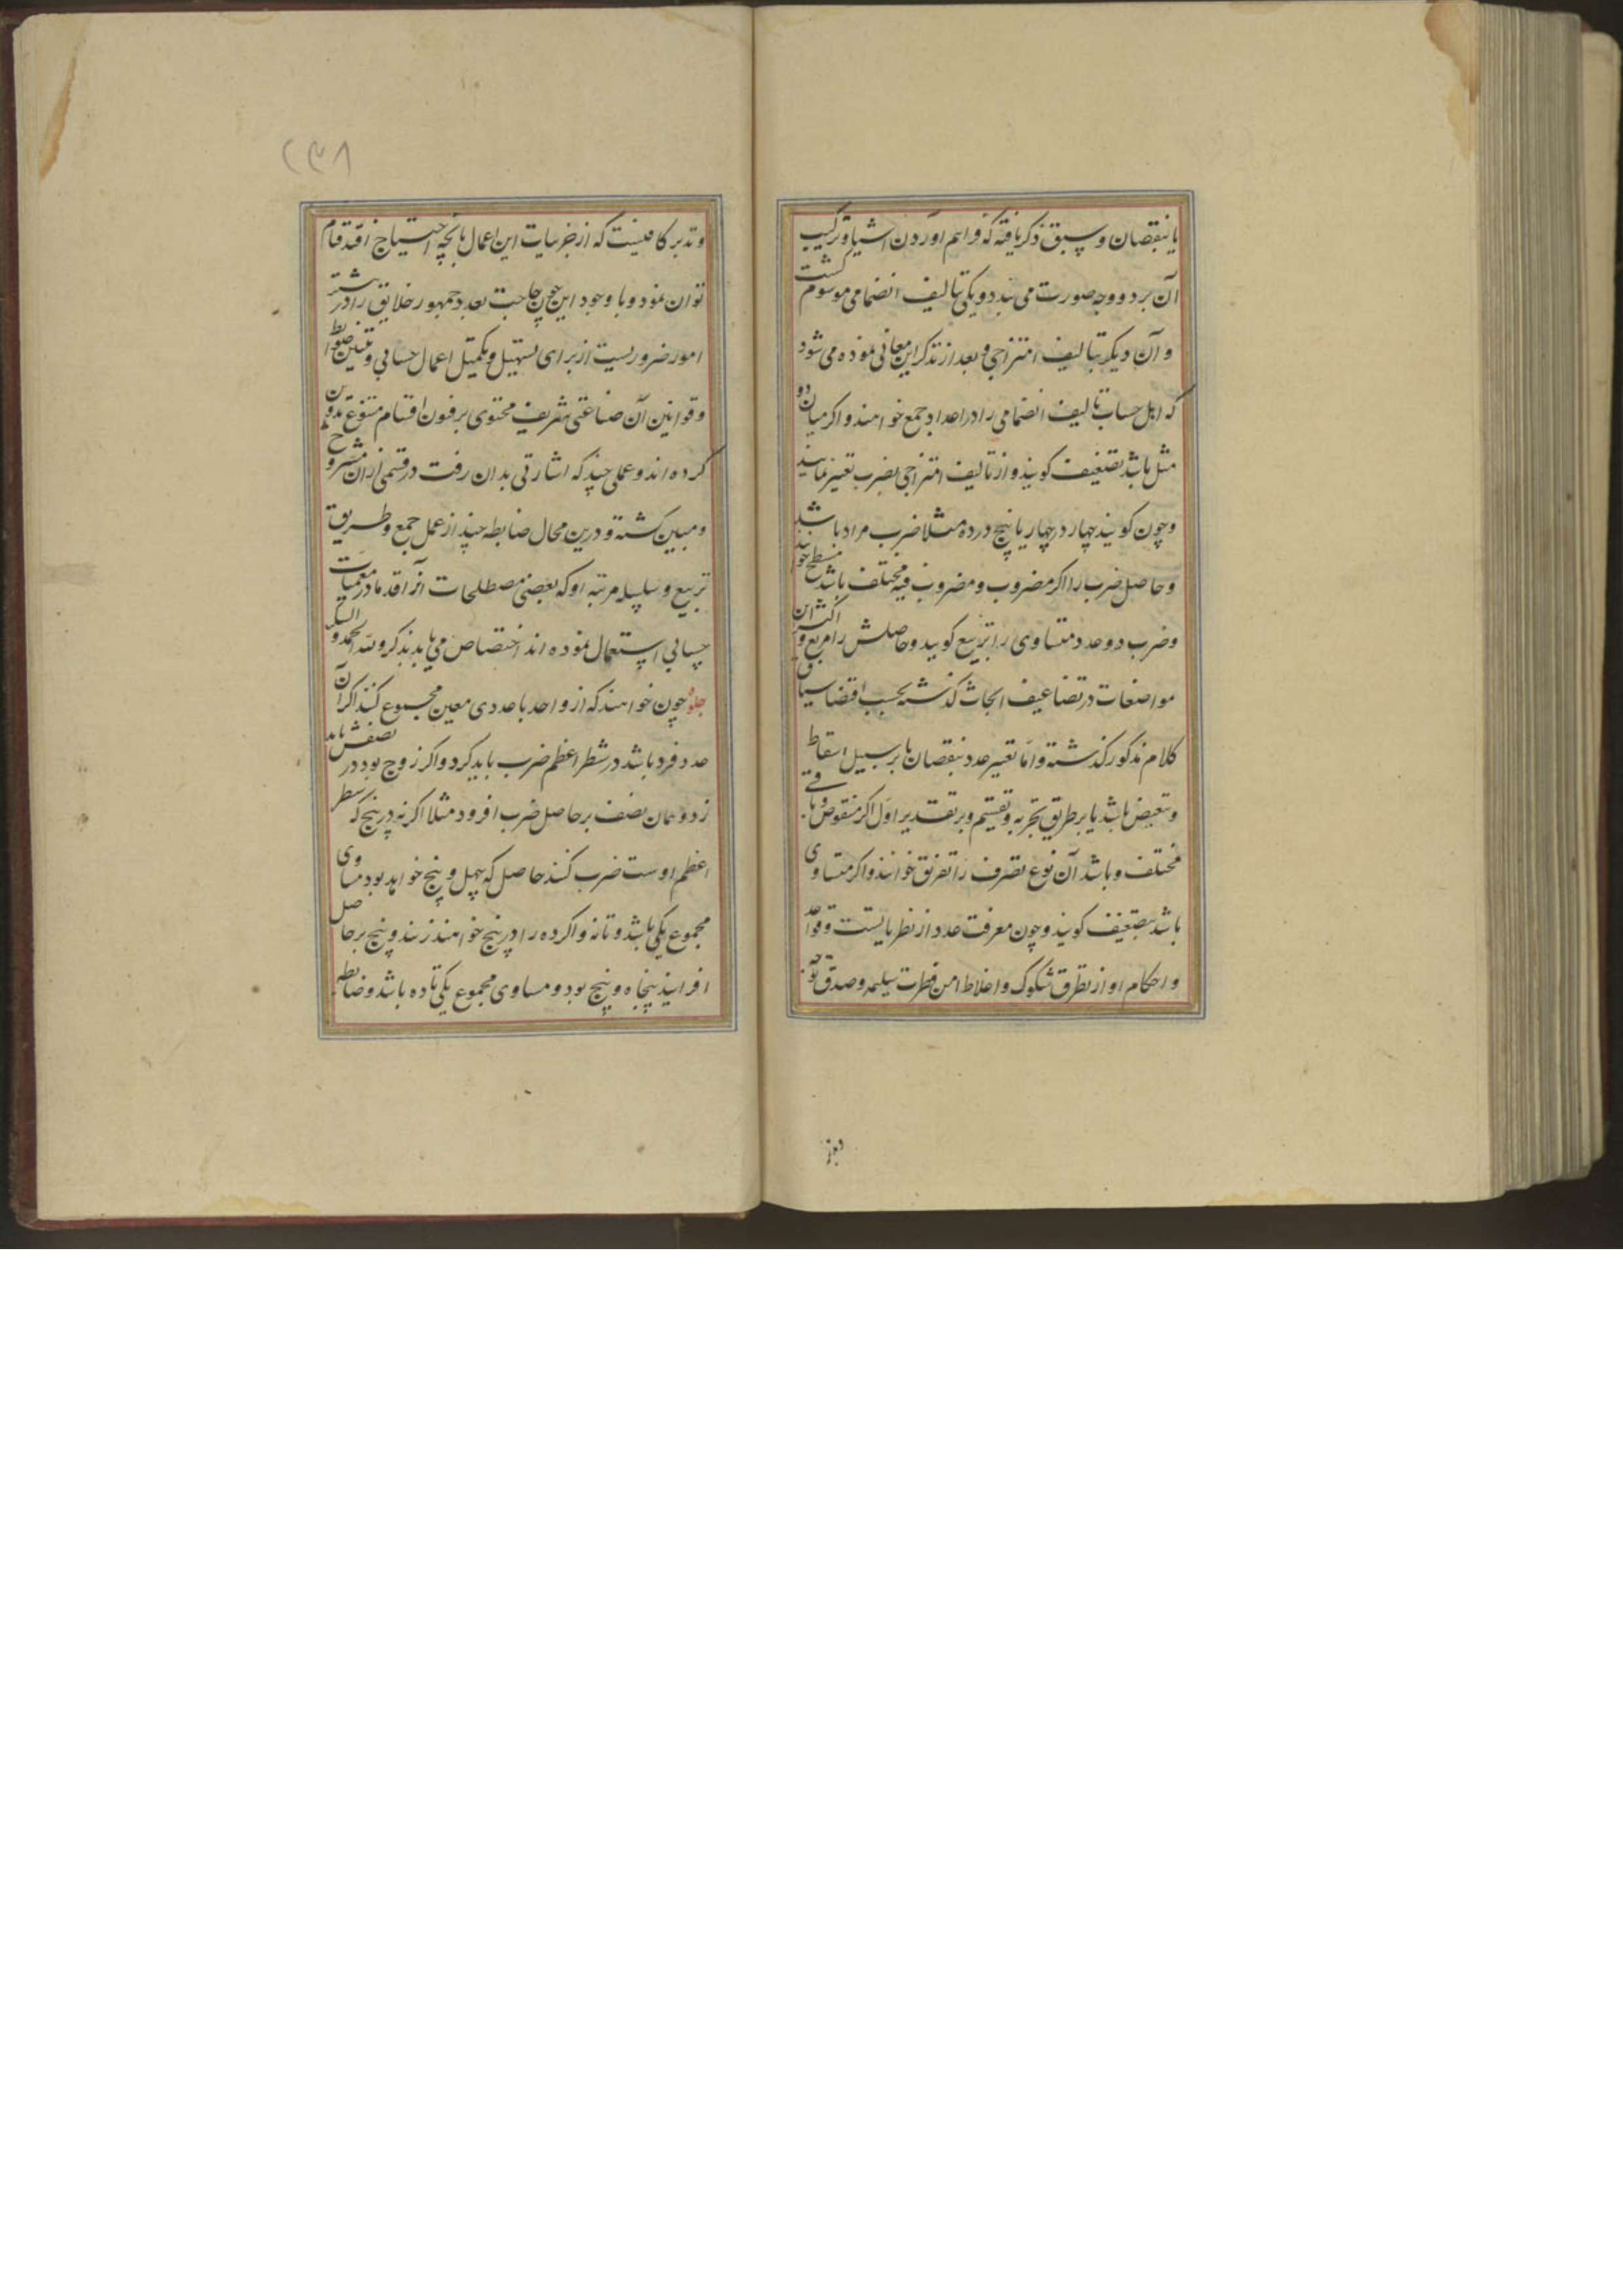 یا بنقصان و سبق ذکر یافته که فراهم اوردن اشیا و ترکیب
آن بر دو وجه صورت می بندد و یکی بتالیف انضمامی موسوم گشت
و آن دیگر بتالیف امتزاجی و بعد از تذکر این معانی نموده می شود
که اهل حساب تالیف انضمامی را در اعداد جمع خوانند و اگر میان دو
مثل باشد تضعیف گویند و از تالیف امتزاجی بضرب تعبیر نمایند
و چون گویند چهار در چهار یا پنج در ده مثلا ضرب مراد باشد
و حاصل ضرب را اگر مضروب و مضروب فیه مختلف باشد مسطح خوانند
و ضرب دو عدد متساوی را تربیع گویند و حاصلش را مربع و اکثر این
مواضعات در تضاعیف ابحاث گذشته بحسب اقتضا سیاق
کلام مذکور گذشته و اما تغییر عدد بنقصان یا بر سبیل اسقاط
و تبعیض باشد یا بر طریق تجزیه و تقسیم و بر تقدیر اول اگر منقوص و باقی
مختلف باشد آن نوع تصرف را تفریق خوانند و اگر متساوی
باشد بتضعیف گویند و چون معرفت عدد از نظریاتست و قواعد
و احکام او از تطرق شکوک و اغلاط امن فطرت سلیمه و صدق توجه
و تدبر کافیست که از جزییات این اعمال بانچه احتیاج افتد قیام
توان نمود و با وجود این چون حاجت بعدد جمهور خلایق را در بیشتر
امور ضروریست از برای تسهیل و تکمیل اعمال حسابی و تبیین ضوابط
و قوانین آن صناعتی شریف محتوی بر فنون اقسام متنوع تدوین
کرده اند و عملی چند که اشارتی بدان رفت در قسمی ازان مشروح
و مبین گشته و درین محال ضابطه چند از عمل جمع و طریق
تربیع و سلسله مرتبه او که بعضی مصطلحات انرا قدما در معمیات
حسابی استعمال نموده اند اختصاص می یابد بذکر و لله الحمد و
جلوه چون خواهند که از واحد با عددی معین مجموع کنند اگر آن
عدد فرد باشد در شطر اعظم ضرب باید کرد و اگر زوج بود در نصفش باید
زد و همان نصف بر حاصل ضرب افزود مثلا اگر نه در پنج که شطر
اعظم اوست ضرب کنند حاصل که چهل و پنج خواهد بود مساوی
مجموع یکی باشد و تا نه و اگر ده را در پنج خواهند زنند و پنج بر حاصل
افزایند پنجاه و پنج بود و مساوی مجموع یکی تا ده باشد و ضابطه